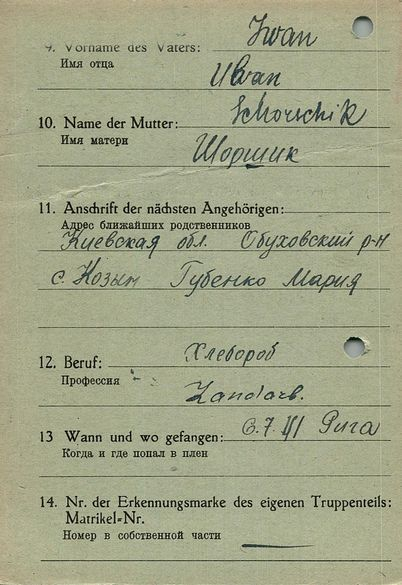 9. Vorname des Vaters: Iwan
Имя отца
Иван
10. Name der Mutter: Schorschik
Имя матери
Шоршик
11. Anschrift der nächsten Angehörigen:
Адрес ближайших родственников
Киевская обл. Обуховский р-н
с. Козын Губенко Мария
12. Beruf: Хлебороб
Профессия
Landarb.
13 Wann und wo gefangen: 6.7.41 Рига
Когда и где попал в плен
14. Nr. der Erkennungsmarke des eigenen Truppenteils:
Matrikel-Nr.
Номер в собственной части